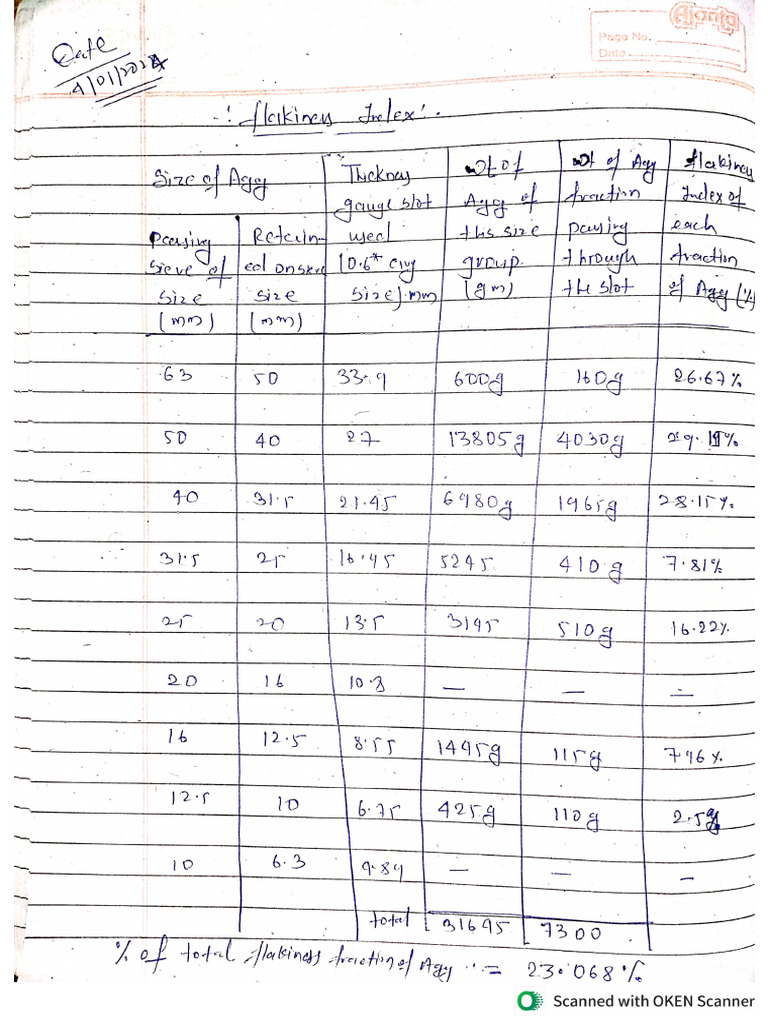 Ajanta
Page No.
Date
Date
4/01/2024
: flakiness Index :
Size of Agg
Passing sieve of size (mm)
Retained on sieve size (mm)
Thickness gauge slot used (0.6* avg size) mm
Wt of Agg of this size group. (gm)
Wt of Agg fraction passing through the slot
flakiness Index of each fraction of Agg (%)
63 50 33.9 600g 160g 26.67%
50 40 27 13805g 4030g 29.19%
40 31.5 21.45 6980g 1965g 28.15%
31.5 25 16.95 5245 410g 7.81%
25 20 13.5 3145 510g 16.22%
20 16 10.8 — — —
16 12.5 8.55 1495g 115g 7.96%
12.5 10 6.75 425g 110g 2.59
10 6.3 9.89 — — —
total 31695 7300
% of total flakiness fraction of Agg = 23.068%
Scanned with OKEN Scanner